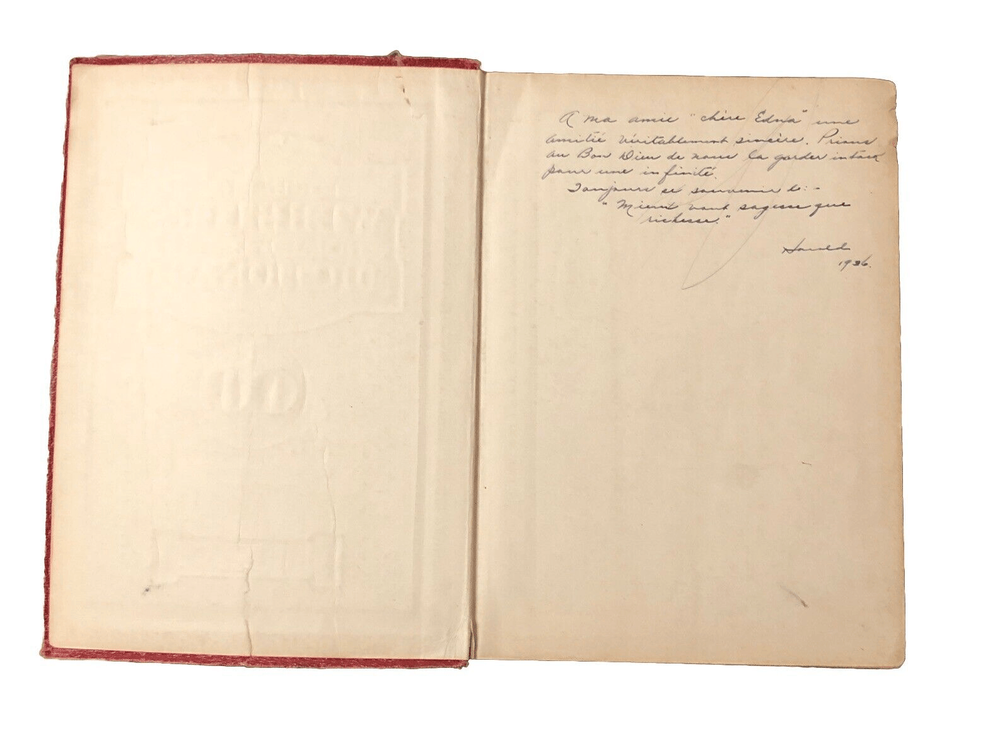 A ma amie "chère Edna" une
amitié véritablement sincère. Prions
au Bon Dieu de nous la garder intact
pour une infinité.
Toujours se souvenir de:-
"Mieux vaut sagesse que
richesse."
1936.